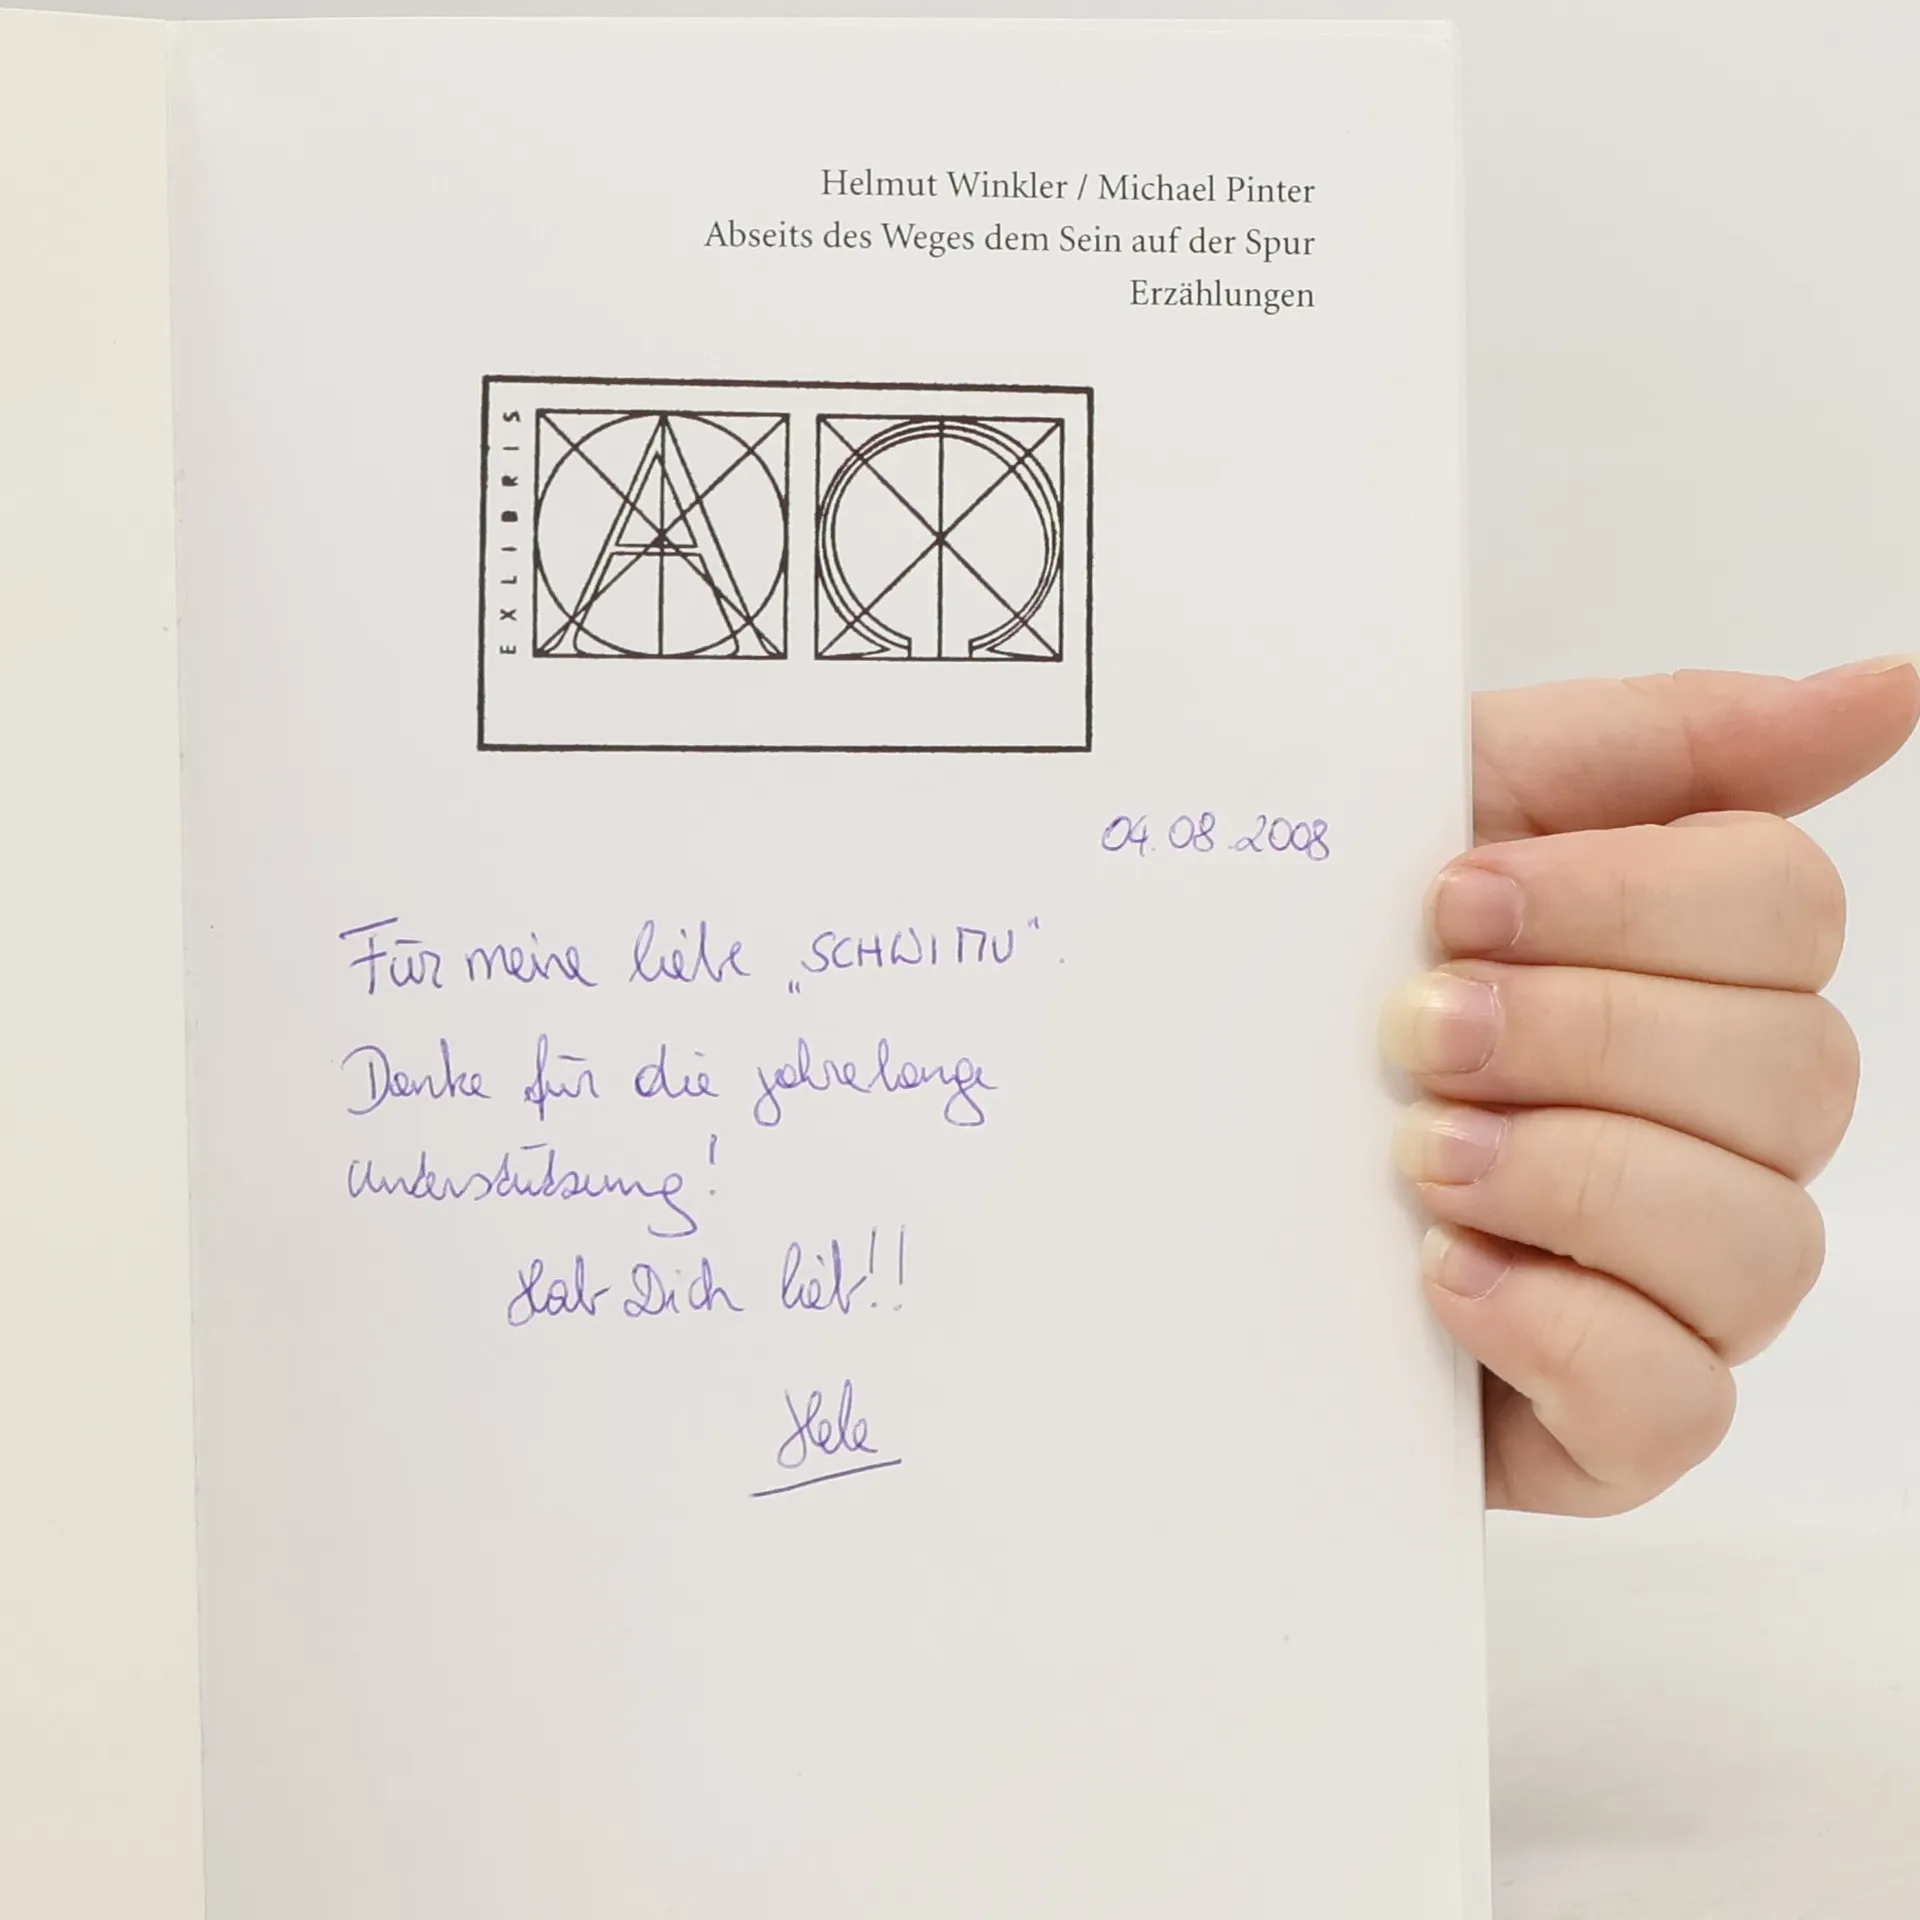 Helmut Winkler / Michael Pinter
Abseits des Weges dem Sein auf der Spur
Erzählungen
EXLIBRIS
A Ω
04.08.2008
Für meine liebe „SCHWIMU".
Danke für die jahrelange
Unterstützung!
Hab Dich lieb!!
Hele